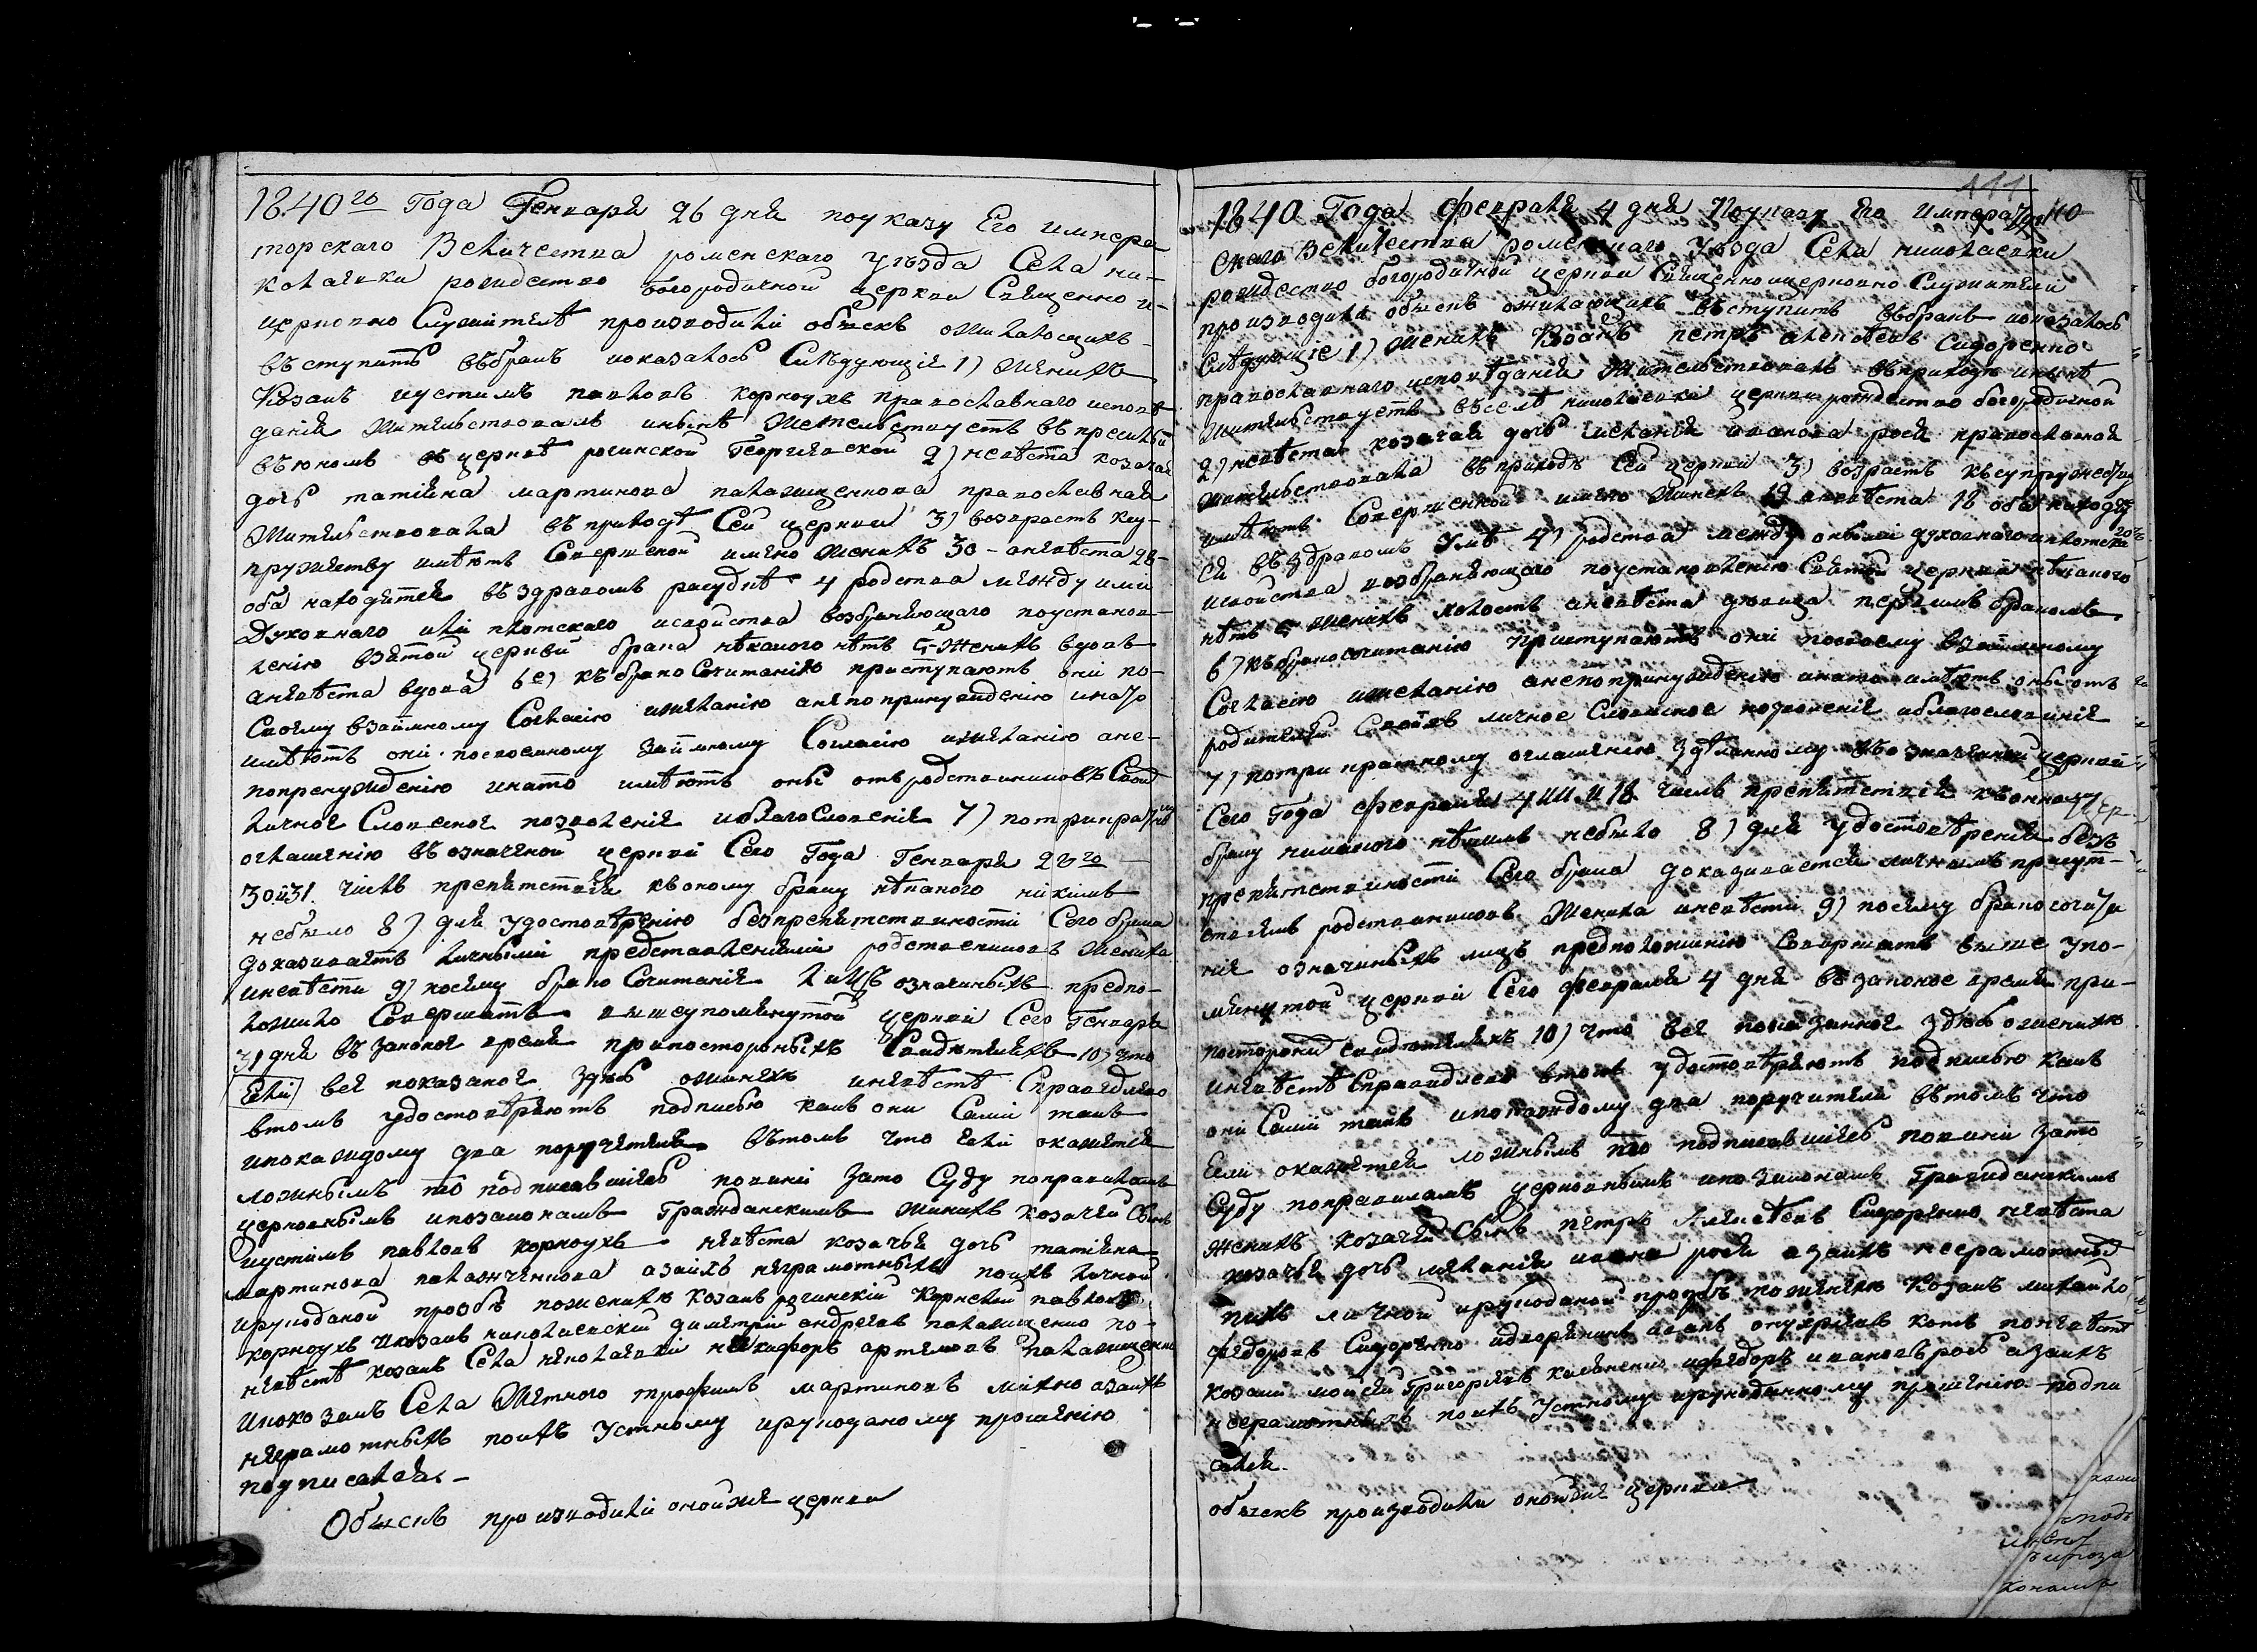 1840го Года Генваря 26 дня поуказу Его импера-
торского Величества роменского уезда Села ни-
колаевки рождество богородичной церкви Священно и-
церковно Служителѣ производили обыскъ ожилающихъ
въступить вбракъ показалось Слѣдующія 1) Женихъ
Козакъ іустимъ павловъ корноухъ православнаго исповѣ-
данія жительствовалъ инынѣ Жительствуетъ
въ церквѣ рогинской Георгіевской 2) невѣста козачая
дочь татіяна мартинова палажченкова православная
Жительствовала въприходѣ Сей церкви 3) возврастъ ксу-
пружеству имѣютъ Совершеной имено женихъ 30-аневѣста 28-
оба находятся въздравомъ расудкѣ 4 родства между ими
Духовнаго или плотскаго исвойства возбраняющаго поустанов-
ленію взятой церкви брака нѣкакого нѣтъ 5-Женихъ вдовъ
аневѣста вдова 6е) къ брако Сочитанію приступаютъ они по-
Своему взаимному Согласію ижеланію анепопринуждению инато
имѣютъ они посвоему заимному Согласію ижеланію ане-
попренуждению инато имѣютъ оны отъ родствениковъ Своих
личное Словесное позволеніе иблагословеніе 7) потрикратному
оглашенію въ означеной церкви Сего Года Генваря 28го
30.и31. числъ препятствія къоному браку нѣкакого никимъ
небыло 8) для удостовѣренію безпрепятственности Сего брака
доказиваетъ личными представленіями родствениковъ жениха
иневѣсти 9) посему брако Сочитаніе лицъ означиныхъ предпо-
ложило Совершать вышеупомянутой церкви Сего Генваря
31 дня въ законое время припосторонныхъ Свидѣтеляхъ 10) что
Ели все показаное здѣсь ожинихѣ иневѣстѣ Справедливо
втомъ удостовѣряютъ подписью какъ они Сами такъ
ипокаждому два поручителя вътомъ что ежели окажется
ложнымъ то подписавшіесь повини зато Суду поправиламъ
церковнымъ ипозаконамъ Гражданскимъ жинихъ козачій Сынъ
іустимъ павловъ корноухъ невѣста козачья дочь татіяна
мартинова палажченкова азаихъ неграмотныхъ поихъ личной
ирукоданой прозбѣ поженихѣ козакъ рогинскій Корнелій павловъ
корноухъ икозакъ николаевскій димитрій андреевъ палажченко по-
невѣстѣ козакъ Села николаевки никифоръ артемовъ палажченко
икозакъ Села трофимъ мартиновъ михно азаихъ
неграмотныхъ поихъ устному ирукоданому прошенію
подписался.-
Обыскъ производили онойже церкви
111
1840 Года февраля 4 дня Поуказу Его император 110
Скаго Величества роменскаго уѣзда Села николаевки
рождество богородичной церкви Священноицерковно Служители
производили обыскъ ожилающихъ въступить вбракъ показалось
Слѣдующіе 1) женихъ Козакъ петръ алексѣевъ Сидоренко
православнаго исповѣданія жительствовалъ въприходѣ инынѣ
жительствуетъ въселѣ николаевки церкви рождество богородичной
2) невѣста козачая дочь меланія иванова рося православной
жительствовала въприходѣ Сей церкви 3) возрастъ късупружеству
имѣютъ Совершенной имено жинехъ 19 аневѣста 18 оба находят
ся въздравомъ умѣ 4) родства между оными духовнаго иплотска
исвойства возбраняющаго поустановленію Святой церкви нѣкакого
нѣтъ 5 женихъ холостъ аневѣста дѣвица первымъ бракомъ
6) къбракосочитанію приступаютъ они посвоему взаимному
Согласію ижеланію анепопринужденію инато имѣютъ оны отъ
родителей Своихъ личное Словесное позволеніе иблагословиніе
7) потри кратному оглашенію здѣланному въозначенной церкви
Сего Года февраля числъ препятствія къоному
браку никакого нѣкимъ небыло 8) для удостовѣренія безъ
препятствиности Сего брака доказивается личнымъ присут-
ствіемъ родствениковъ Жениха иневѣсти 9) посему бракосочита
ніе означиныхъ лицъ предположинію Совершить выше упо-
мянутой церкви Сего февраля 4 дня въ законое время при-
посторонних свидѣтеляхъ 10) что все показанное здѣсь оженихѣ
иневѣстѣ Справидливо втомъ удостовѣряютъ подписью какъ
они Сами такъ ипокаждому два поручителя вътомъ что
Если окажется ложнымъ то подписавшіесь повини зато
Суду поправиламъ церковнымъ ипо законамъ Гражданскимъ
женихъ козачій Сынъ петръ Алексѣевъ Сидоренко невѣста
козачья дочь меланія рося азаихъ неграмотных
поихъ личной ирукоданой прозбѣ поженихѣ Козакъ михайло
федоровъ Сидоренко идворянинъ котъ поневѣстѣ
козаки мойсей Григоріевъ ифедоръ ивановъ рось азаихъ
неграмотныхъ поихъ устному ирукоданному прошенію подпи
сался.
обыскъ производили онойже церкви